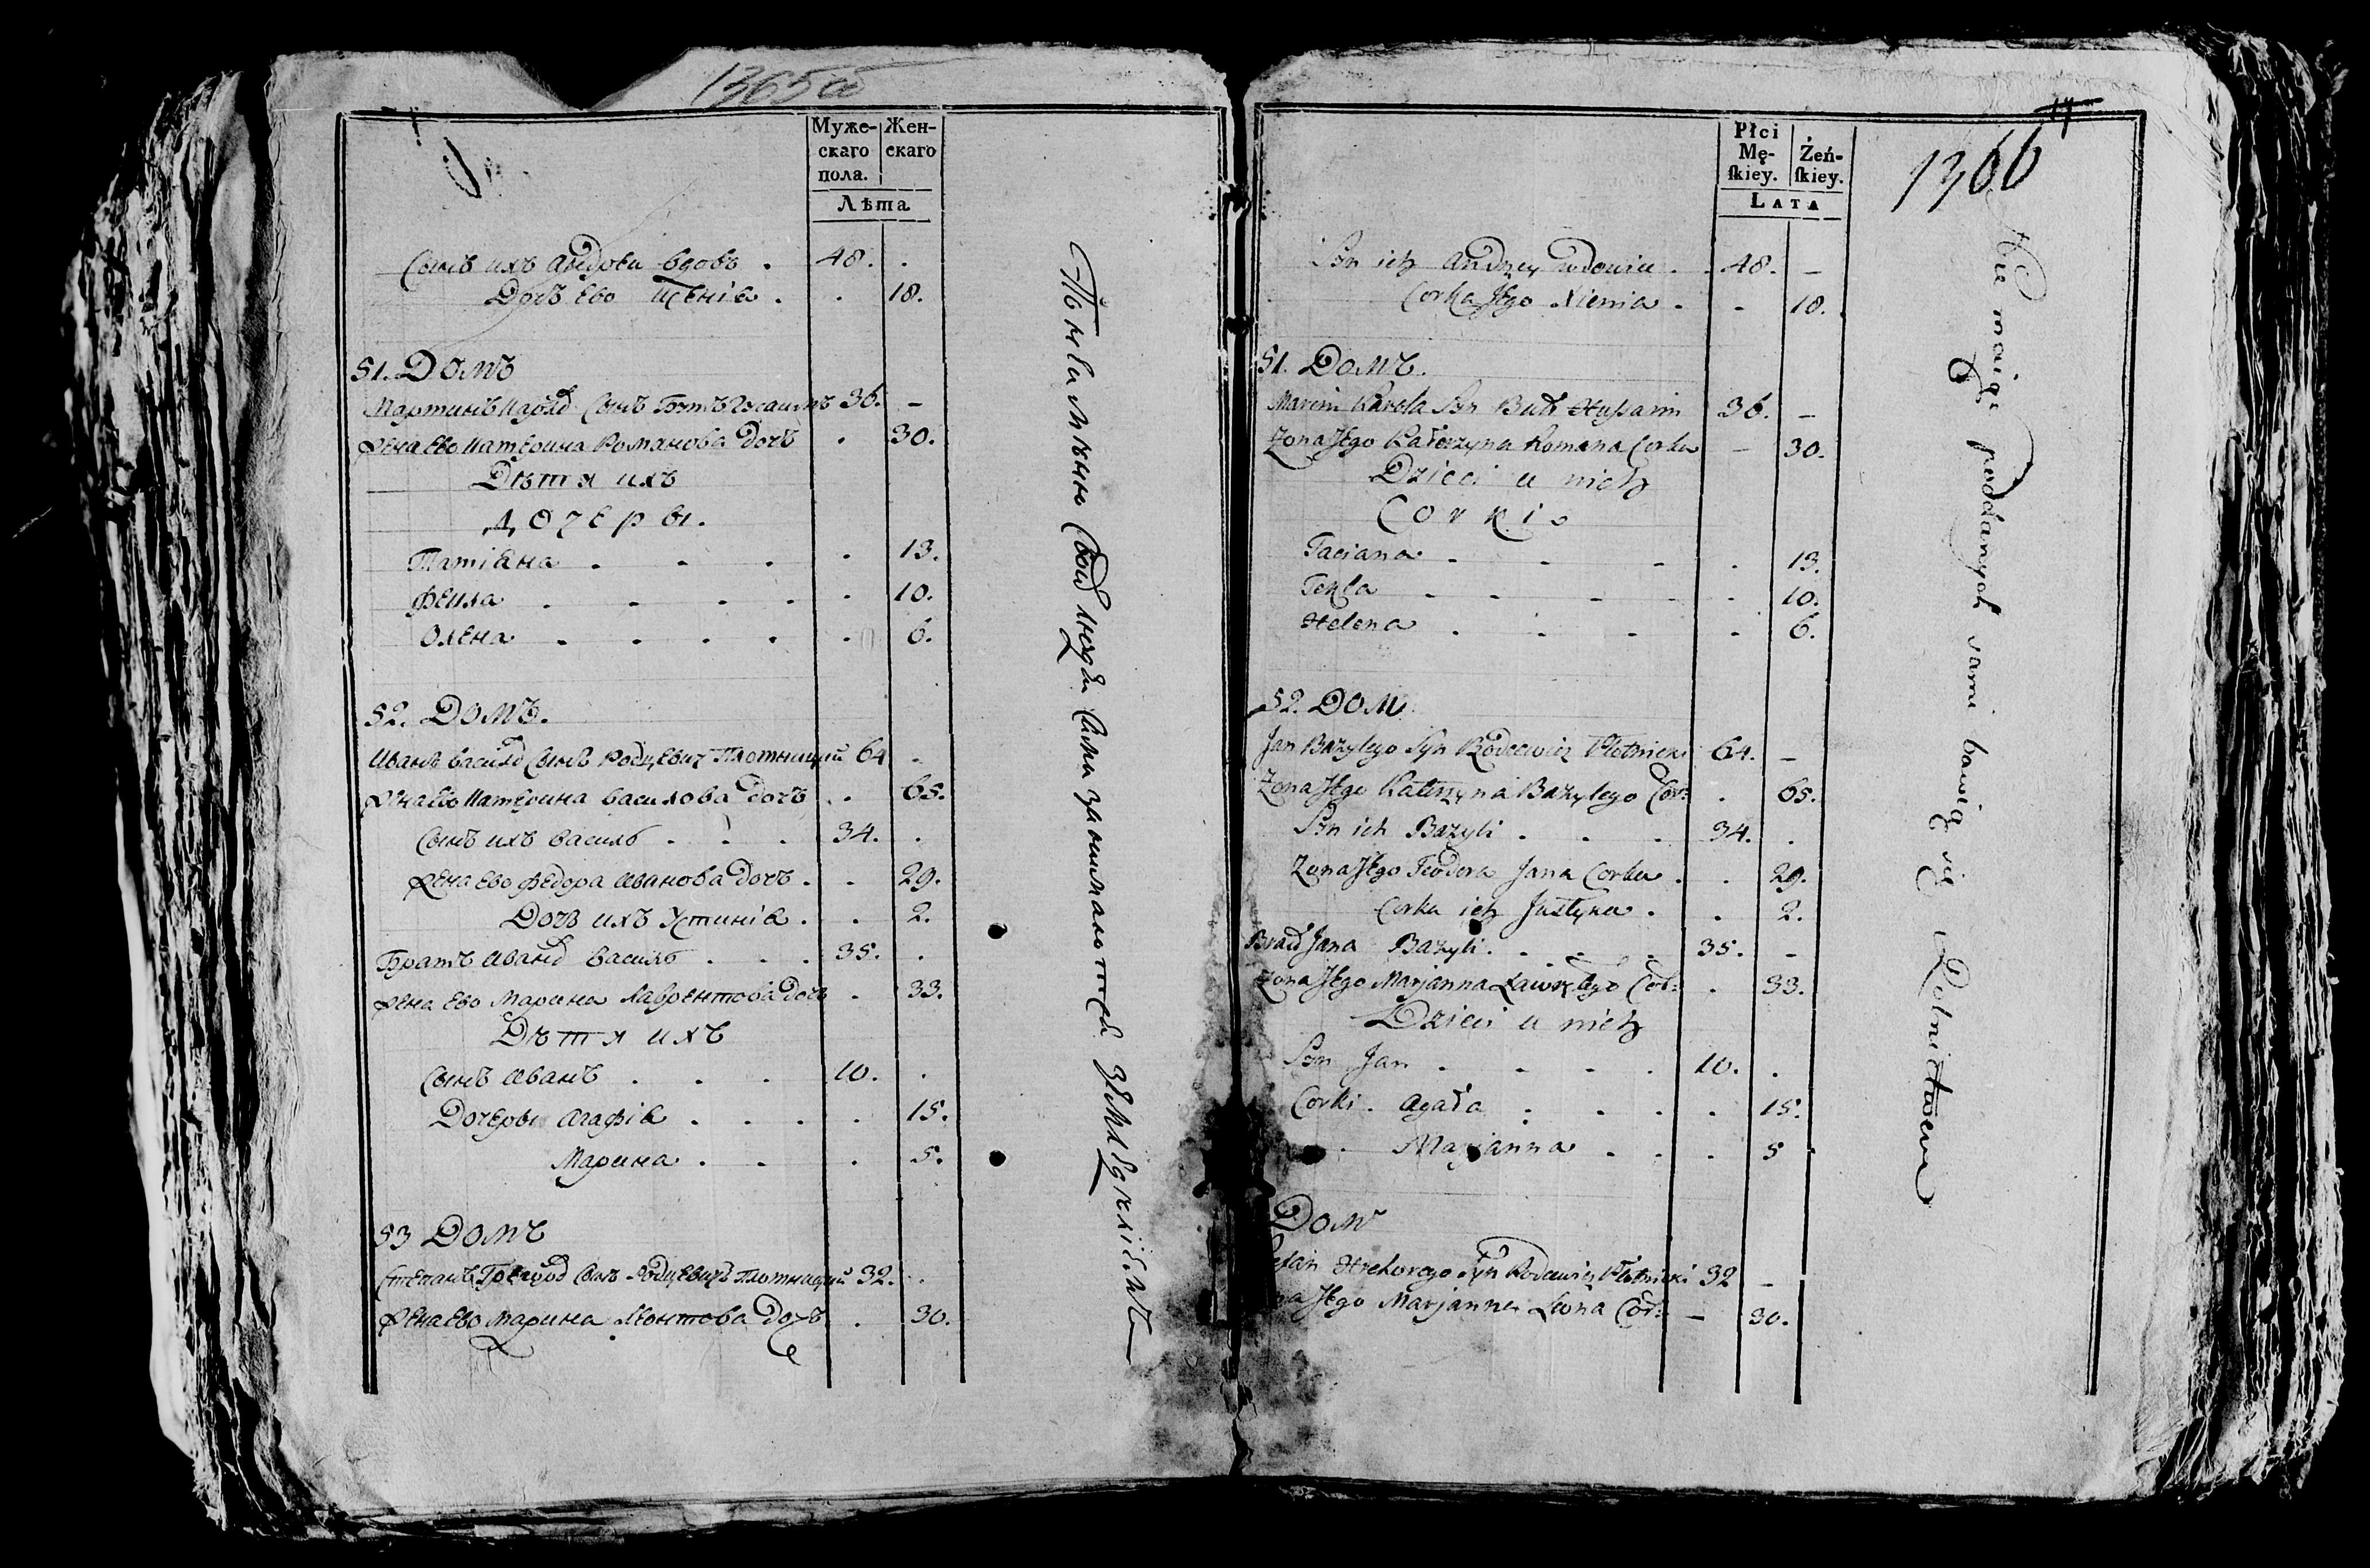 1365 об
Муже-
скаго
пола.
Жен-
скаго
Лѣта
Сынъ ихъ Андрей вдовъ . 48. .
Дочъ Ево Ксенія . . 18.
51. Домъ
Мартинъ Карол Сынъ Бутъ Гусаимъ 36. -
Жена Ево Катерина Романова Дочъ . 30.
Дѣти ихъ
Дочеры.
Татіяна . . . . 13.
Фекла . . . . . 10.
Олена . . . . . 6.
52. Домъ.
Иванъ Васил Сынъ Родцевич Плотницкий 64 .
Жена Ево Катерина Василова Дочъ . . 65.
Сынъ ихъ Василь . . . 34. .
Жена Ево Федора Иванова Дочъ . . 29.
Дочъ ихъ Устинія . . 2.
Братъ Иванов Василь . . . 35. .
Жена Ево Марина Лаврентова Дочъ . 33.
Дѣти ихъ
Сынъ Иванъ . . . 10. .
Дочеры Агафія . . . . 15.
Марина . . . 5.
53 Домъ
Степанъ Григор Сынъ Родцевичъ Плотницкий 32. .
Жена Ево Марина Леонтова Дочъ . 30.
люди сами
17
1366
Płci
Mę-
ſkiey.
Żeń-
ſkiey.
Lata
Syn ich Andrzey wdowiec . 48. -
Corka Jego Xienia . - 18.
51. Домъ.
Marcin Karola Syn But Hussaim 36. -
Zona Jego Katerzyna Romana Corka - 30.
Dzieci u nich
Corki
Taciana . - - . 13.
Tekla - - - - - 10.
Helena . . - - 6.
52. Дом
Jan Bazylego Syn Rodcewicz Płotnicki 64. -
Zona Jego Katerzyna Bazylego Cor: . 65.
Syn ich Bazyli . . . 34. .
Zona Jego Teodora Jana Corka . . 29.
Corka ich Justyna . . 2.
Brat Jana Bazyli . . . . 35. -
Zona Jego Marjanna Ławrego Cor: . 33.
Dzieci u nich
Syn Jan . - . . 10. .
Corki . Agata . . . . 15.
Marjanna . . . 5
Dom
Hrehorego Syn Rodcewicz Płotnicki 32 -
Jego Marjanna Leona Cor: - 30.
Nie maią poddanych sami bawią się Rolnictwem